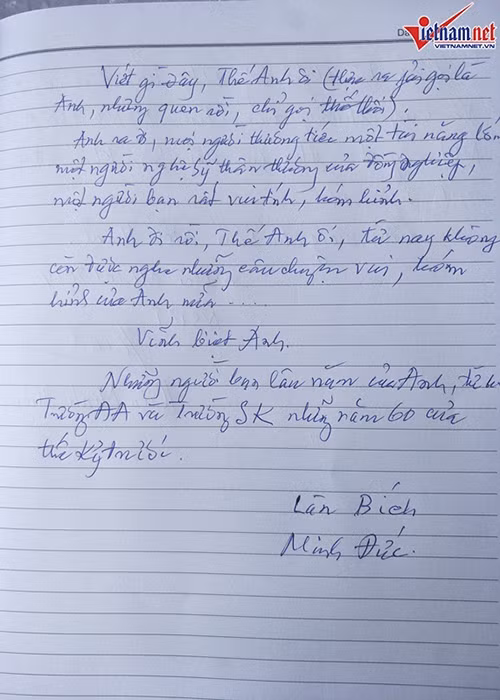 vietnamnet
VIETNAMNET.VN
Viết gì đây, Thế Anh ơi (thực ra phải gọi là
Anh, nhưng quen rồi, chỉ gọi thế thôi).
Anh ra đi, mọi người thương tiếc một tài năng lớn
một người nghệ sỹ thân thương của đồng nghiệp,
một người bạn rất vui tính, hóm hỉnh.
Anh đi rồi, Thế Anh ơi, từ nay không
còn được nghe những câu chuyện vui, hóm
hỉnh của Anh nữa .....
Vĩnh biệt Anh.
Những người bạn lâu năm của Anh, từ
Trường ĐA và Trường SK những năm 60 của
thế kỷ trước.
Lân Bích
Minh Đức.